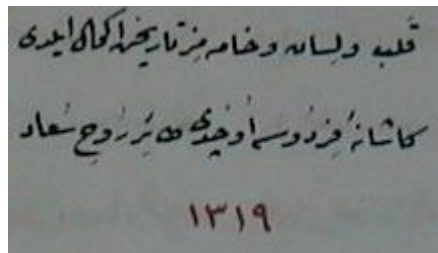 قلب ولسان وخامه مز تاریخن اکمال ایلدی
کاشانهٔ فردوسه اوچدی روح سعاد
١٣١٩